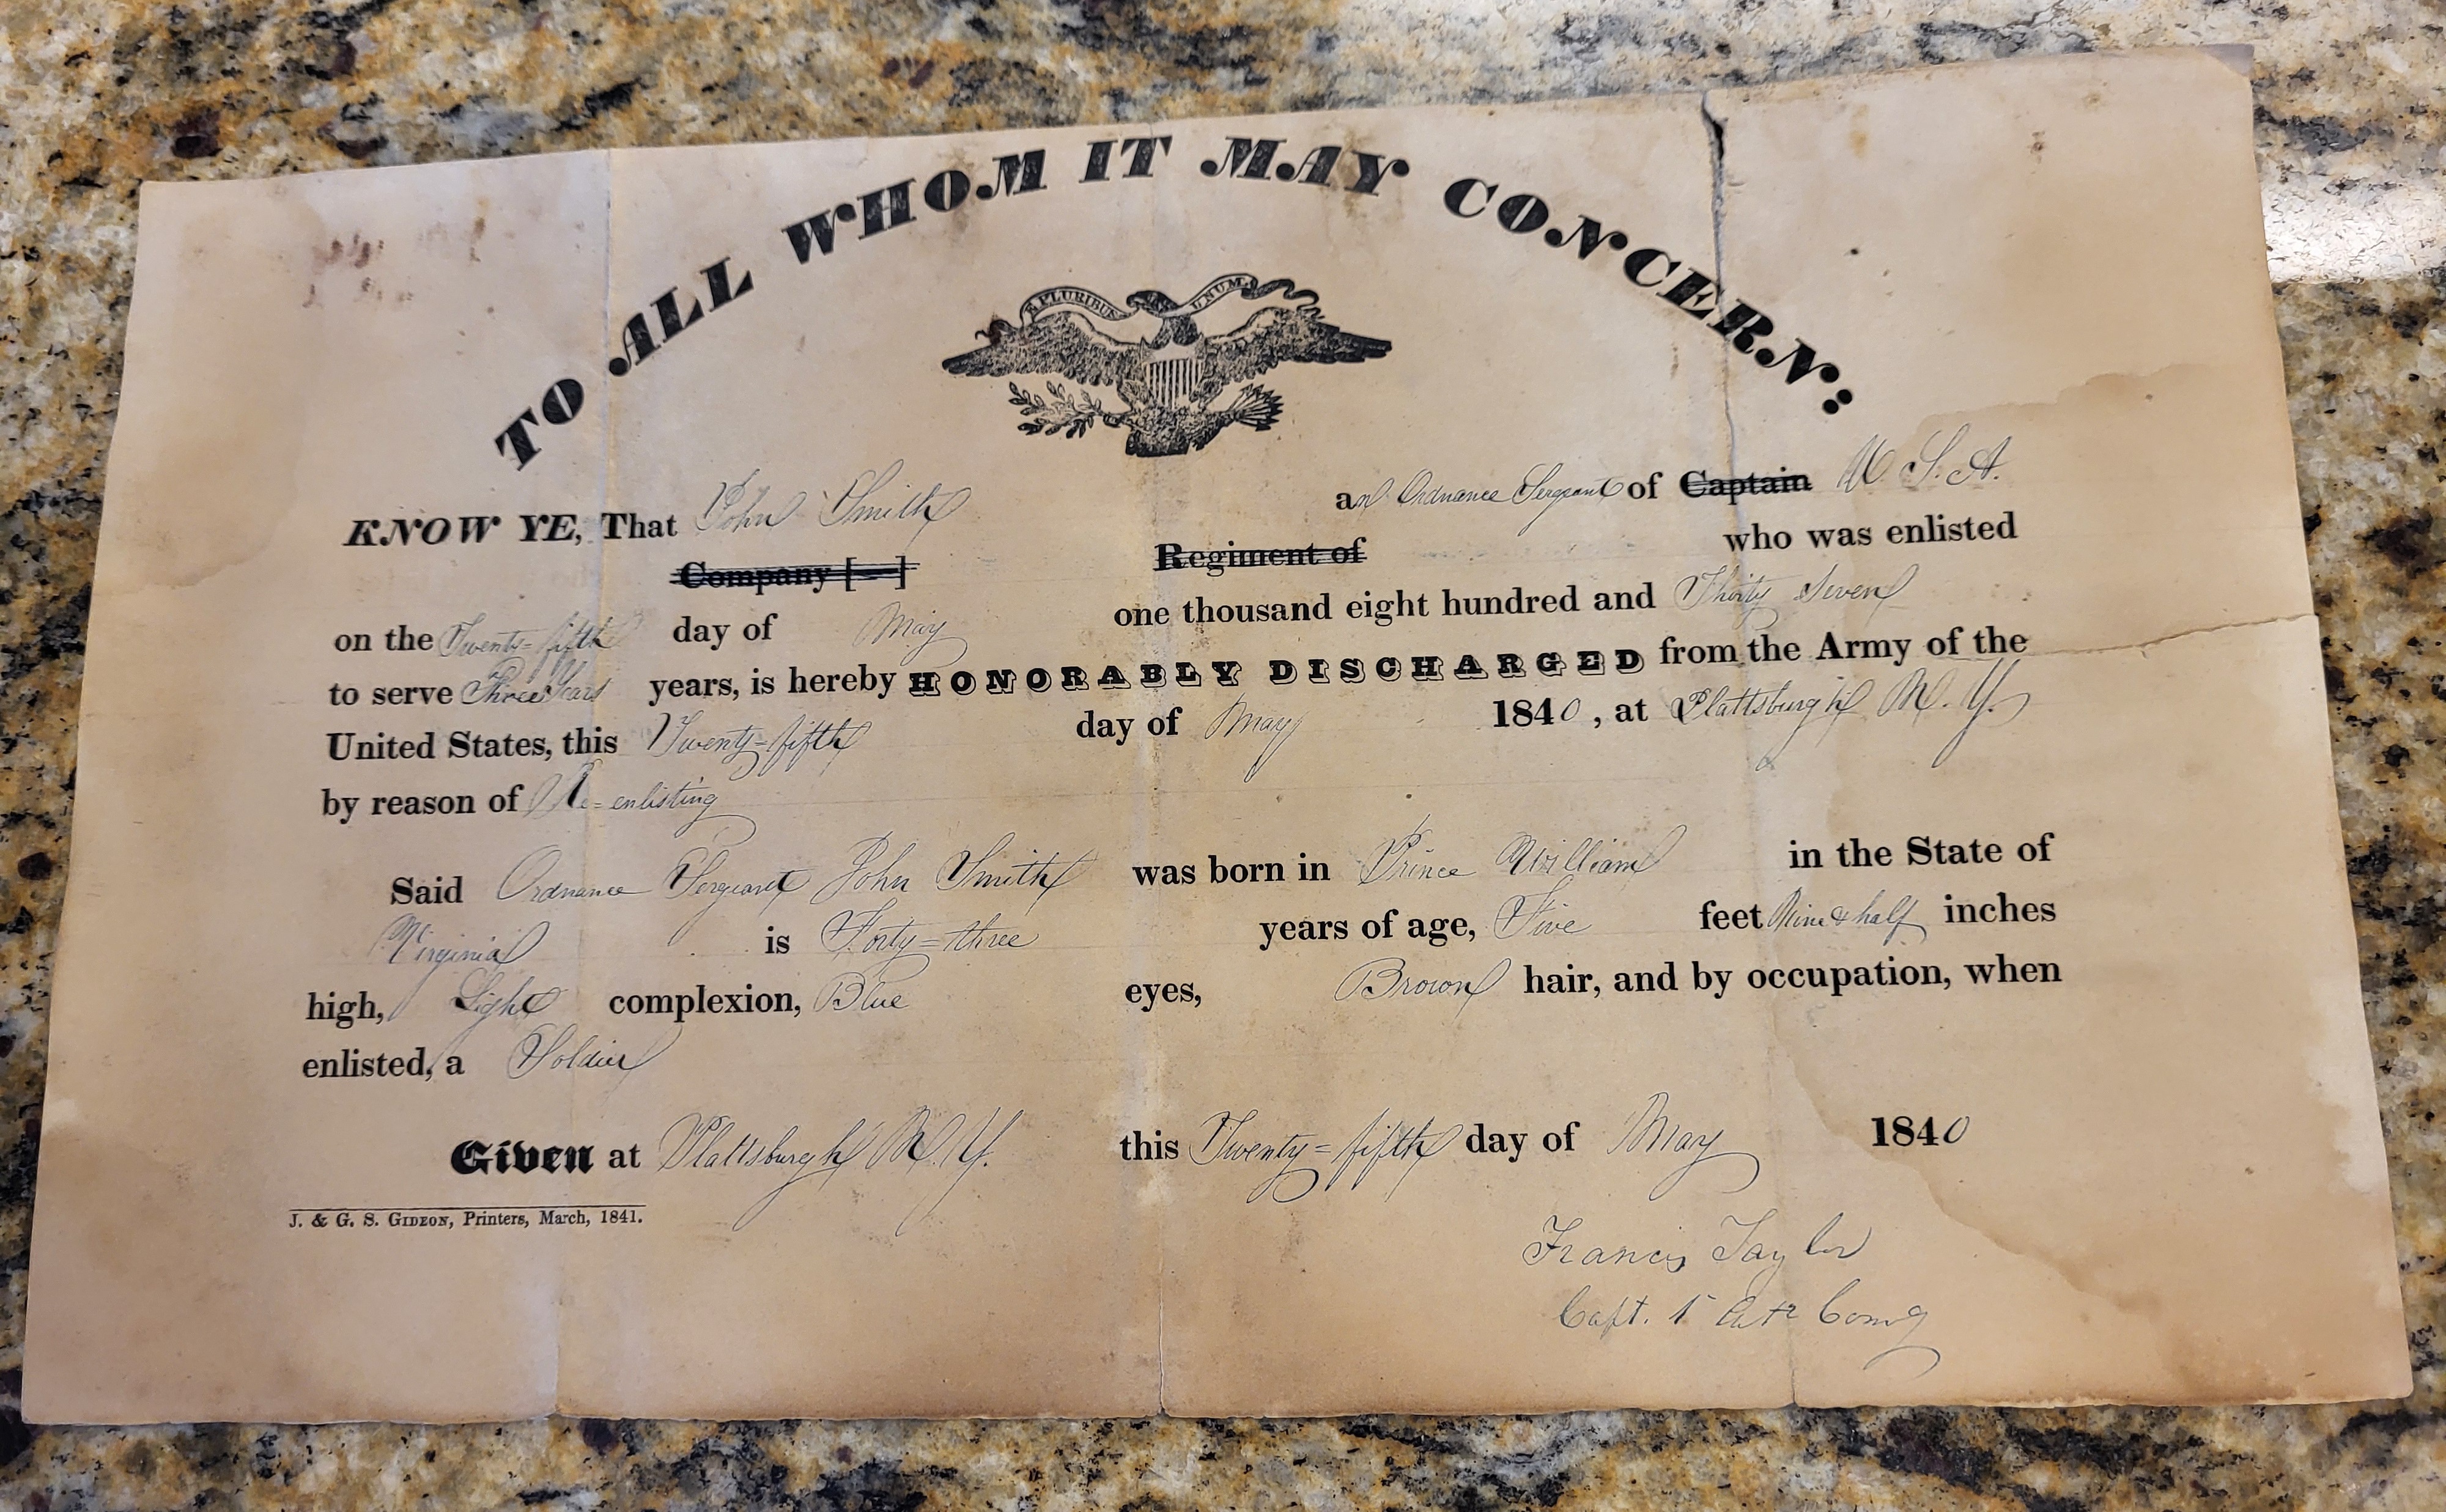 TO ALL WHOM IT MAY CONCERN:
E PLURIBUS UNUM
KNOW YE, That John Smith an Ordnance Sergeant of Captain U. S. A.
Company [—] Regiment of who was enlisted
on the Twenty=fifth day of May one thousand eight hundred and Thirty Seven
to serve Three Years years, is hereby HONORABLY DISCHARGED from the Army of the
United States, this Twenty=fifth day of May 1840, at Plattsburgh N. Y.
by reason of Re=enlisting
Said Ordnance Sergeant John Smith was born in Prince William in the State of
Virginia is Forty=three years of age, Five feet Nine & half inches
high, Light complexion, Blue eyes, Brown hair, and by occupation, when
enlisted, a Soldier
Given at Plattsburgh N. Y. this Twenty=fifth day of May 1840
J. & G. S. GIDEON, Printers, March, 1841.
Francis Taylor
Capt. 1st Arty Comg